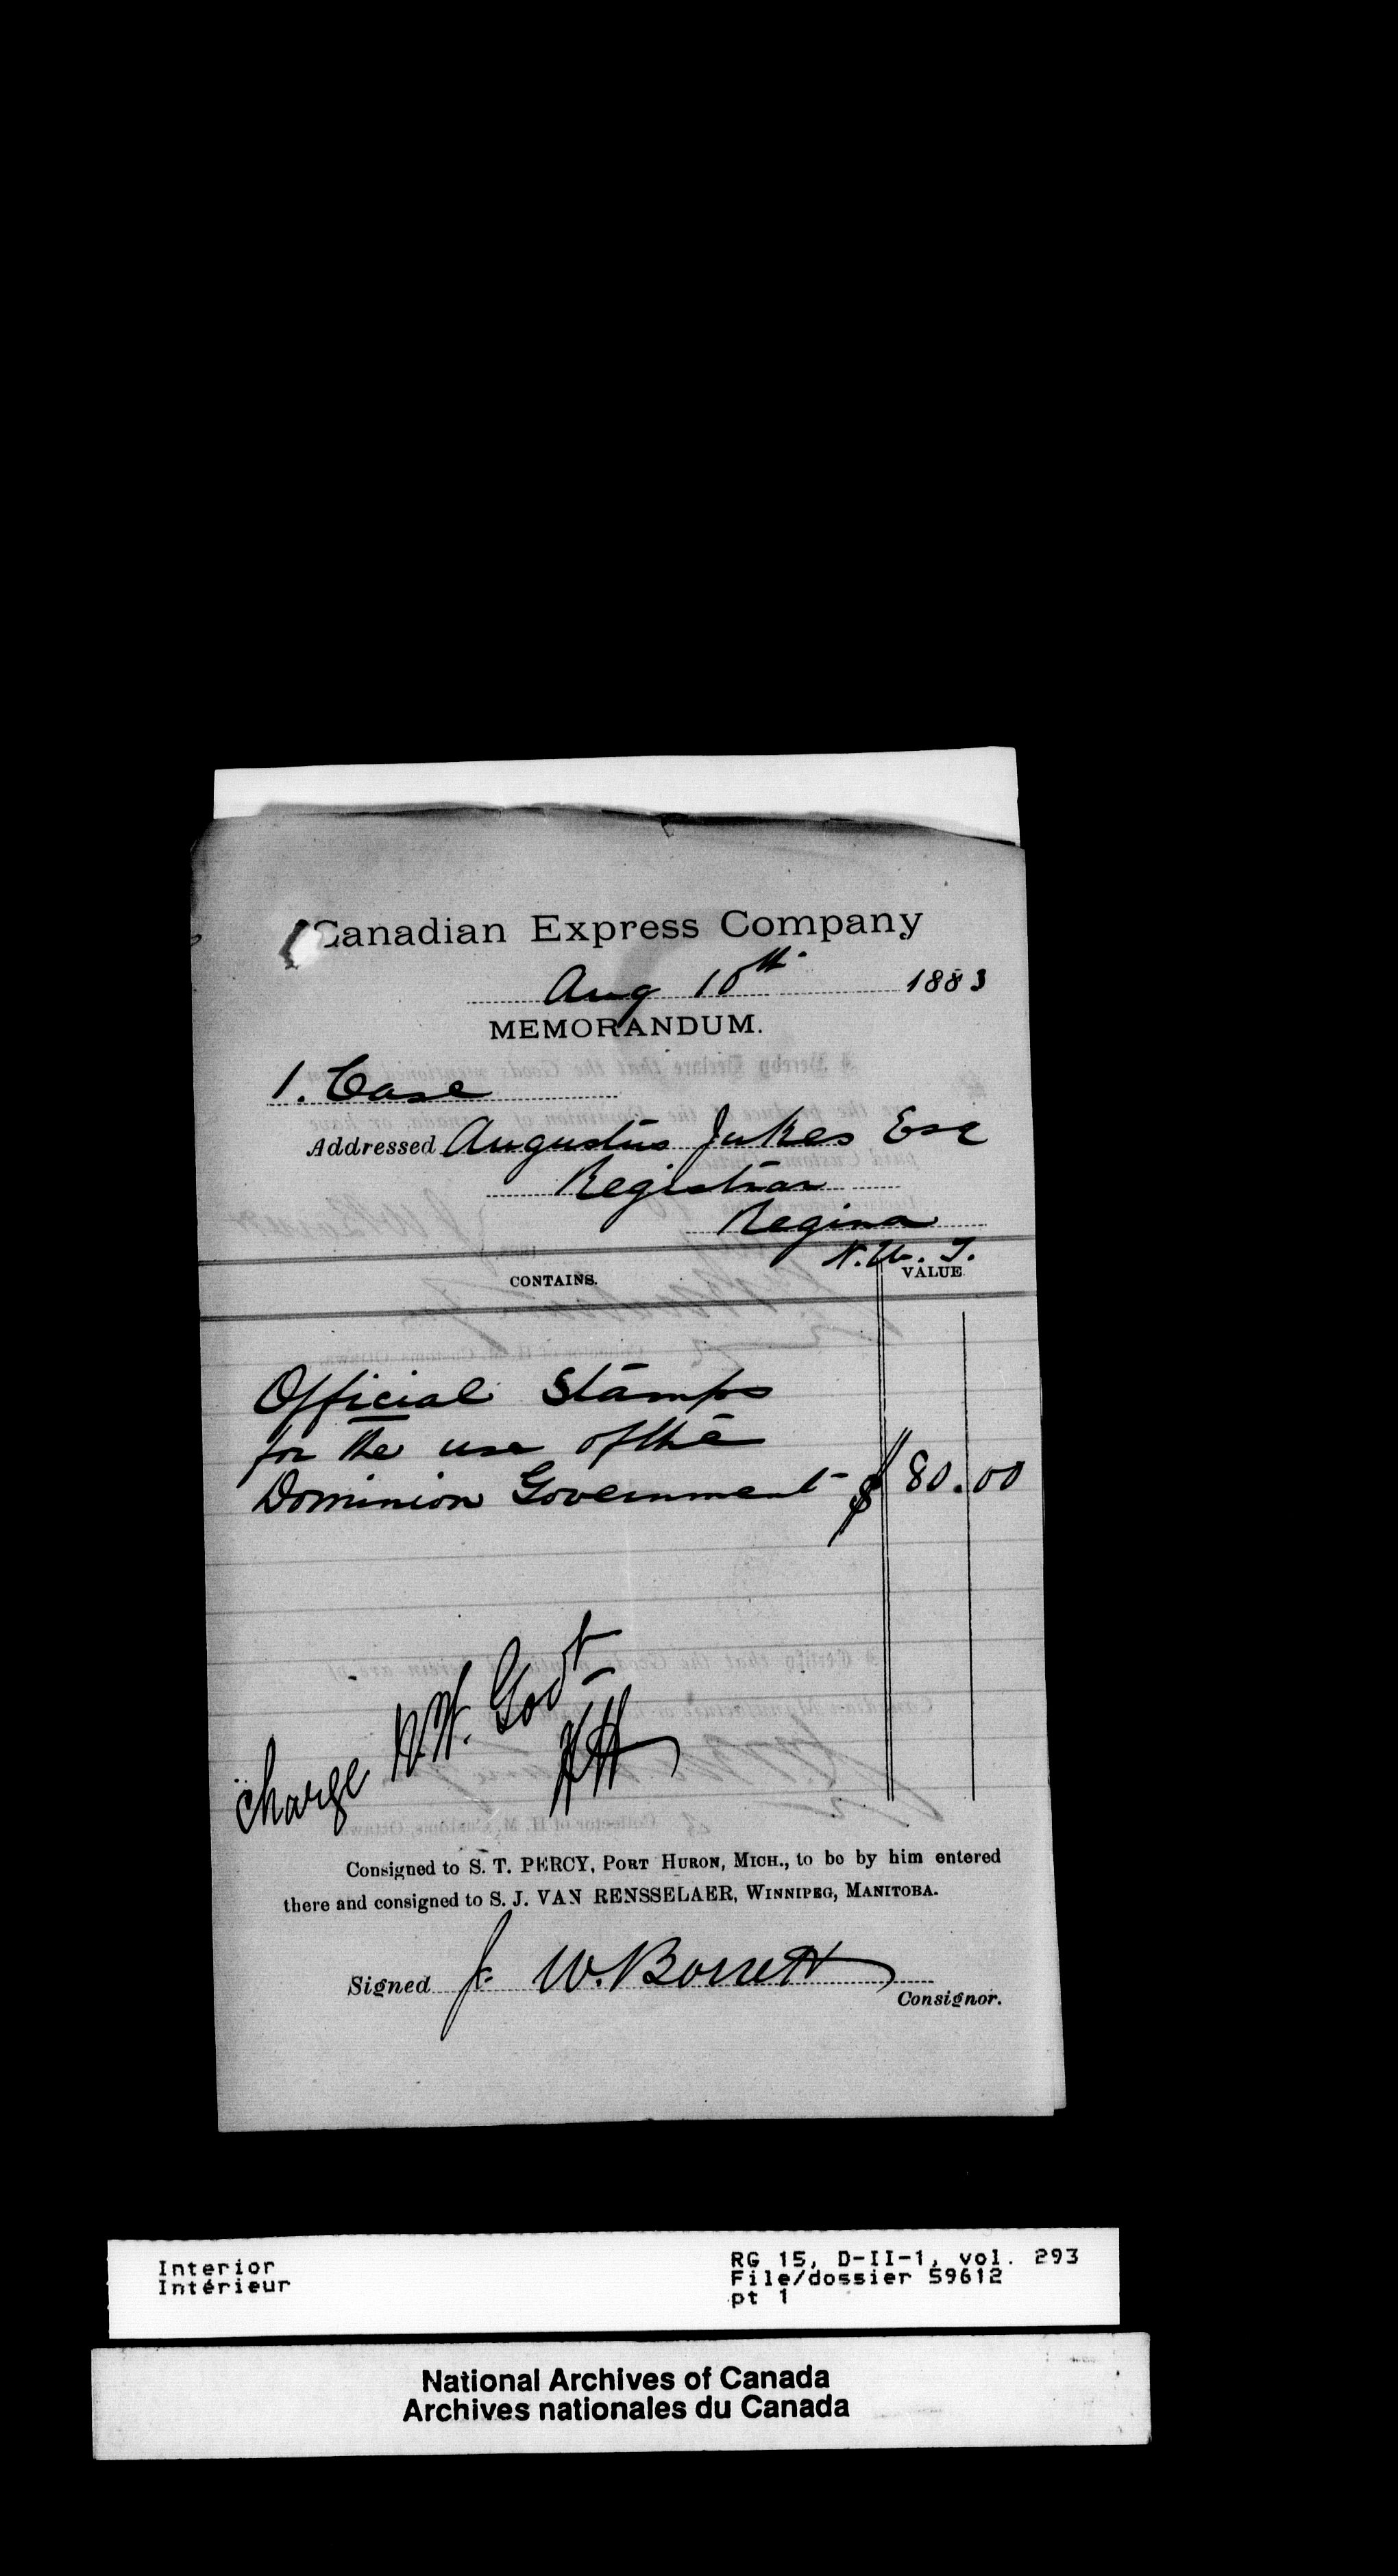 Canadian Express Company
Aug 10th 1883
MEMORANDUM.
1. Case
Addressed Augustus Jukes Esq
Registrar
Regina
N.W. T.
CONTAINS. VALUE.
Official Stamps
for the use of the
Dominion Government - $ 80.00
Charge N.W. Govt
Consigned to S. T. PERCY, PORT HURON, MICH., to be by him entered
there and consigned to S. J. VAN RENSSELAER, WINNIPEG, MANITOBA.
Signed W. Borrett
Consignor.
Interior
Intérieur
RG 15, D-II-1, vol. 293
File/dossier 59612
pt 1
National Archives of Canada
Archives nationales du Canada